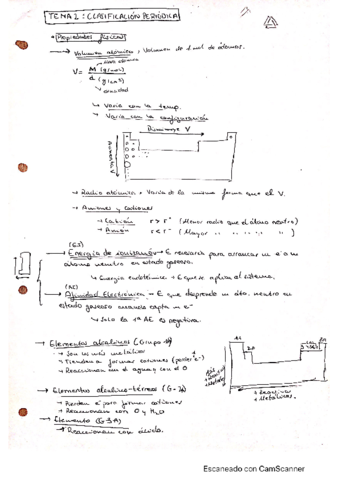 TEMA 2: CLASIFICACIÓN PERIÓDICA
• Propiedades físicas
→ Volumen atómico, Volumen de 1 mol de átomos.
V = M (g/mol)
d (g/cm³)
densidad
↳ Varía con la temp.
↳ Varía con la configuración
Disminuye V
Aumenta V
→ Radio atómico = Varía de la misma forma que el V.
→ Aniones y cationes
→ Catión r > r⁺ (Menor radio que el átomo neutro)
→ Anión r < r⁻ (Mayor " " " " " )
→ Energía de ionización = E necesaria para arrancar un e⁻ a un
átomo neutro en estado gaseoso.
↳ Energía endotérmica = E que se aplica al sistema.
→ Afinidad Electrónica = E que desprende un áto. neutro en
estado gaseoso cuando capta un e⁻
↳ Solo la 1ª AE es negativa.
→ Elementos alcalinos (Grupo 1A)
→ Son los más metálicos
→ Tienden a formar cationes (perder 1 e⁻)
→ Reaccionan con el agua y con el O
→ Elementos alcalino-térreos (G-2A)
→ Pierden e⁻ para formar cationes
→ Reaccionan con O y H₂O
→ Elemento (G 3A)
→ Reaccionan con ácido.
+ Reactivo
+ Metálicos
Escaneado con CamScanner